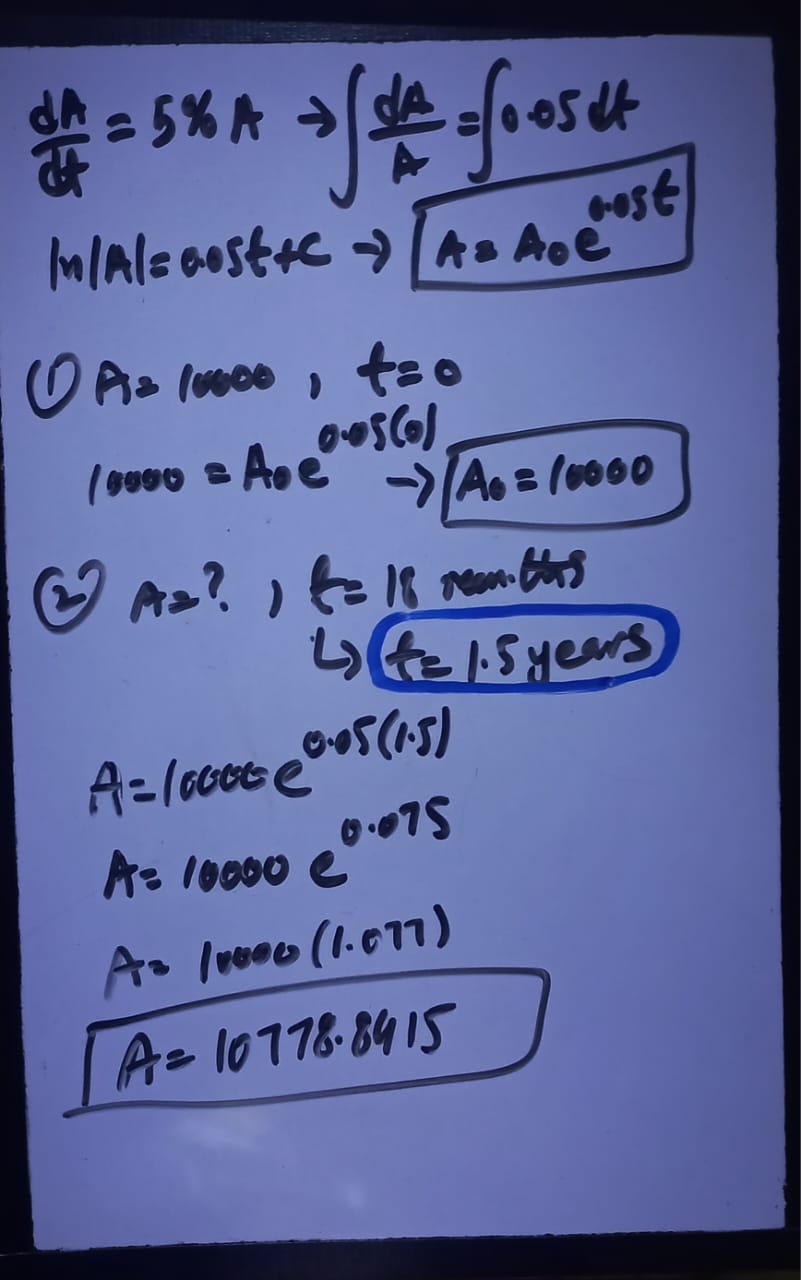 dA/dt = 5% A → ∫ dA/A = ∫ 0.05 dt
ln|A| = 0.05t+C → A = A₀e^0.05t
① A = 10000 , t=0
10000 = A₀e^0.05(0) → A₀ = 10000
② A=? , t= 18 months
↳ t= 1.5 years
A=10000e^0.05(1.5)
A= 10000 e^0.075
A= 10000 (1.077)
A= 10778.8415